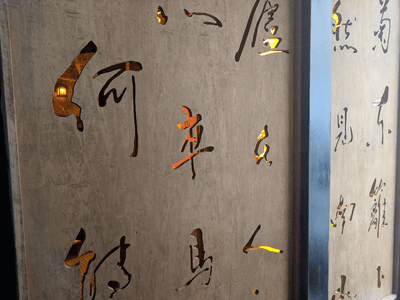 菊東籬下
然見南山
廬在人
車馬
何能